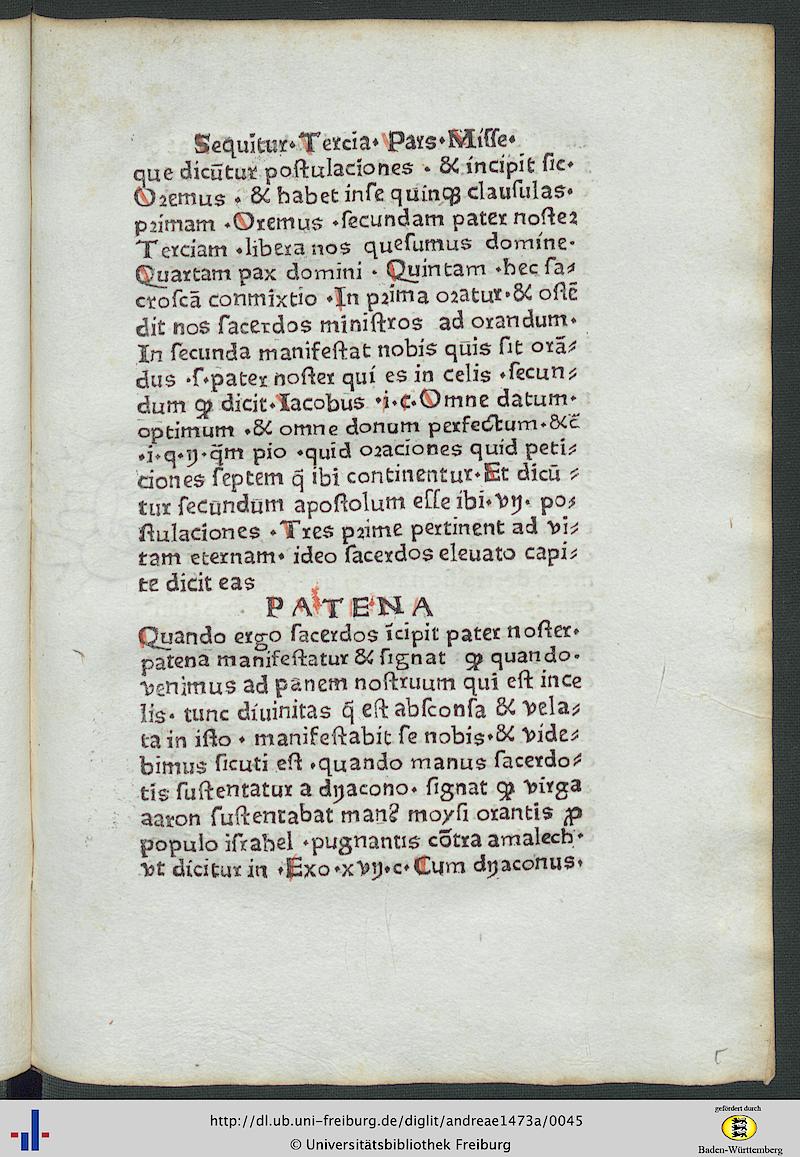 Sequitur· Tercia· Pars· Miſſe·
que dicūtur poſtulaciones · & incipit ſic·
Oꝛemus · & habet inſe quinqꝫ clauſulas·
pꝛimam ·Oremus ·ſecundam pater noſteꝛ
Terciam ·libera nos queſumus domine·
Quartam pax domini · Quintam ·hec ſa⸗
croſcā conmixtio ·In pꝛima oꝛatur·& oſtē
dit nos ſacerdos miniſtros ad orandum·
In ſecunda manifeſtat nobis quis ſit orā⸗
dus ·ſ·pater noſter qui es in celis ·ſecun⸗
dum ꝙ dicit·Iacobus ·i·c·Omne datum·
optimum ·& omne donum perfectum·&c̄
·i·q·ij·q̄m pio ·quid oꝛaciones quid peti⸗
ciones ſeptem q̄ ibi continentur·Et dicū⸗
tur ſecundum apoſtolum eſſe ibi·vij· po⸗
ſtulaciones ·Tres pꝛime pertinent ad vi⸗
tam eternam· ideo ſacerdos eleuato capi⸗
te dicit eas
PATENA
Quando ergo ſacerdos īcipit pater noſter·
patena manifeſtatur & ſignat ꝙ quando·
venimus ad panem noſtruum qui eſt ince
lis· tunc diuinitas q̄ eſt abſconſa & vela⸗
ta in iſto · manifeſtabit ſe nobis·& vide⸗
bimus ſicuti eſt ·quando manus ſacerdo⸗
tis ſuſtentatur a dyacono· ſignat ꝙ virga
aaron ſuſtentabat manꝰ moyſi orantis ꝓ
populo iſrahel ·pugnantis cōtra amalech·
vt dicitur in ·Exo·xvij·c· Cum dyaconus·
http://dl.ub.uni-freiburg.de/diglit/andreae1473a/0045
© Universitätsbibliothek Freiburg
gefördert durch
Baden-Württemberg